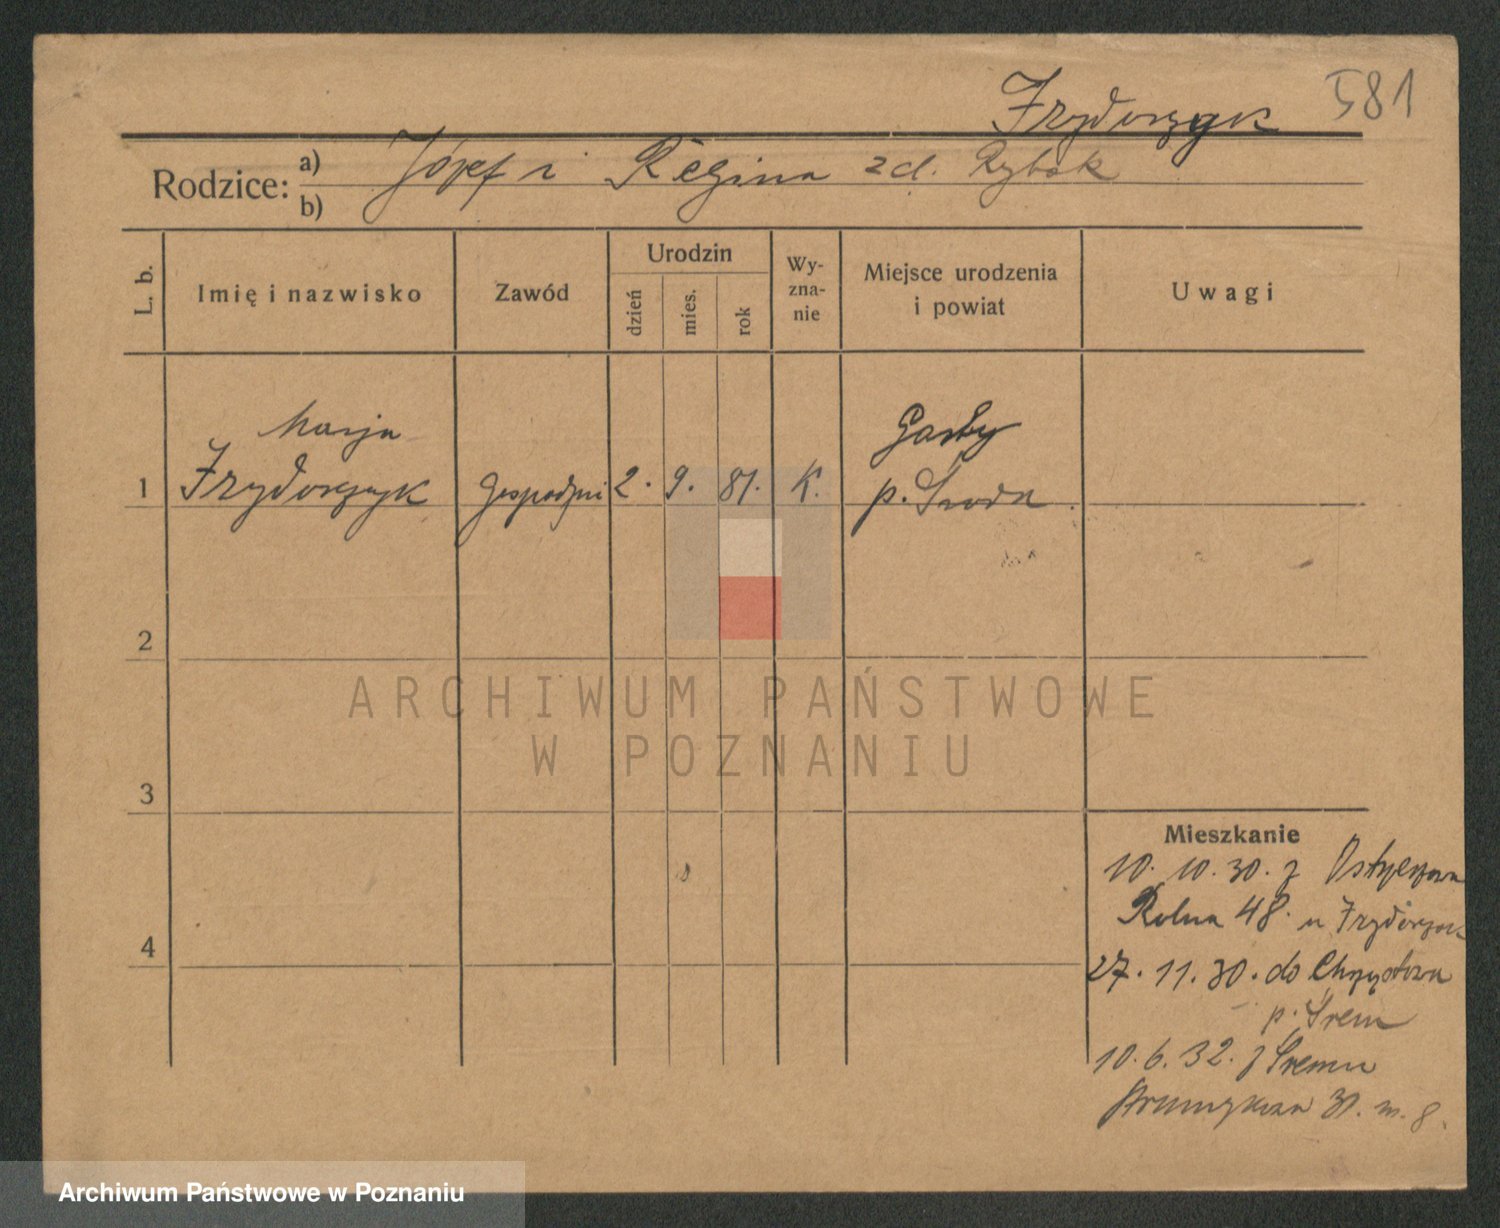 581
Frydryszak
Rodzice: a) Józef i Regina zd. Rybak
b)
L. b.
Imię i nazwisko
Zawód
Urodzin
dzień
mies.
rok
Wy-
zna-
nie
Miejsce urodzenia
i powiat
Uwagi
Marja
Garby
1
gospodyni 2. 9. 81. K. p. Środa
2
3
4
ARCHIWUM PAŃSTWOWE
W POZNANIU
Mieszkanie
10. 10. 30. z
Rolna 48. u
27. 11. 30. do
p. Śrem
10. 6. 32. z Śremu
31. m. 8.
Archiwum Państwowe w Poznaniu